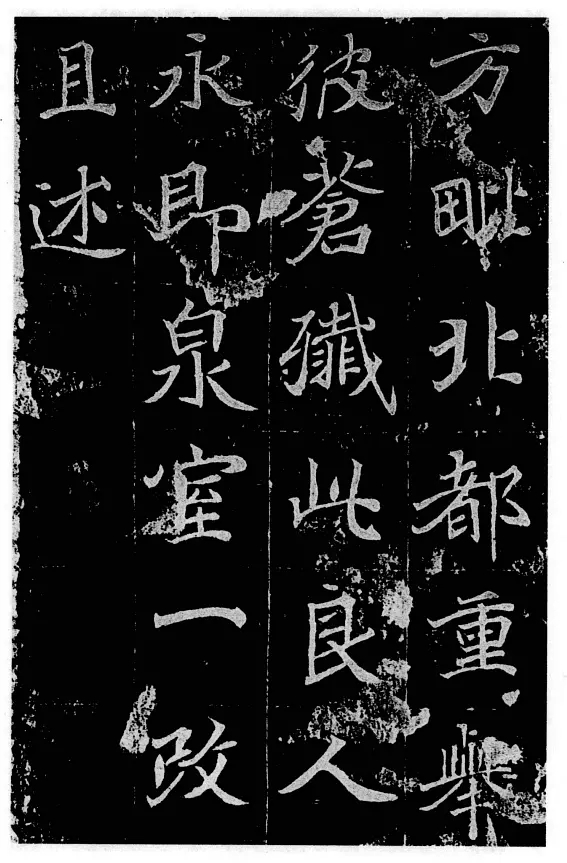 方毗北都重舉
彼蒼殲此良人
永即泉室一改
且述